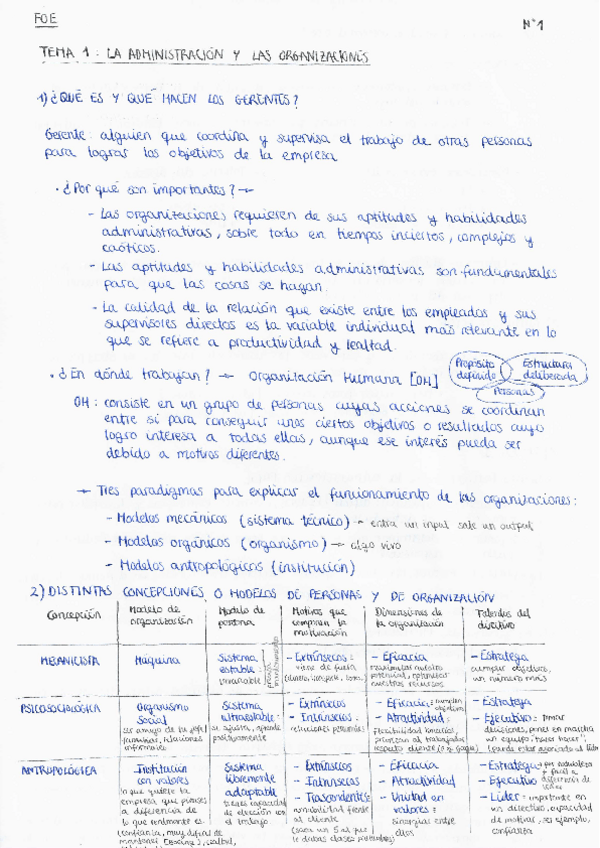 FOE
Nº1
TEMA 1: LA ADMINISTRACIÓN Y LAS ORGANIZACIONES
1) ¿QUÉ ES Y QUÉ HACEN LOS GERENTES?
Gerente: alguien que coordina y supervisa el trabajo de otras personas
para lograr los objetivos de la empresa
· ¿Por qué son importantes? →
- Las organizaciones requieren de sus aptitudes y habilidades
administrativas, sobre todo en tiempos inciertos, complejos y
caóticos.
- Las aptitudes y habilidades administrativas son fundamentales
para que las cosas se hagan.
- La calidad de la relación que existe entre los empleados y sus
supervisores directos es la variable individual más relevante en lo
que se refiere a productividad y lealtad.
· ¿En dónde trabajan? → Organización Humana [OH]
Propósito definido
Estructura deliberada
Personas
OH: consiste en un grupo de personas cuyas acciones se coordinan
entre sí para conseguir unos ciertos objetivos o resultados cuyo
logro interesa a todas ellas, aunque ese interés pueda ser
debido a motivos diferentes.
→ Tres paradigmas para explicar el funcionamiento de las organizaciones:
- Modelos mecánicos (sistema técnico) → entra un input sale un output
- Modelos orgánicos (organismo) → algo vivo
- Modelos antropológicos (institución)
2) DISTINTAS CONCEPCIONES O MODELOS DE PERSONAS Y DE ORGANIZACIÓN
Concepción
Modelo de organización
Modelo de persona
Motivos que componen la motivación
Dimensiones de la organización
Talentos del directivo
MECANICISTA
Máquina
Sistema estable: invariable
- Extrínsecos: viene de fuera
- Eficacia
- Estratega
un número más
PSICOSOCIOLÓGICA
Organismo Social
familiares, relaciones informales
Sistema ultraestable: se ajusta, aprende positivamente
- Extrínsecos
- Intrínsecos: relaciones personales
- Eficacia: cumplen objetivos
- Atractividad: flexibilidad horarios,
- Estratega
- Ejecutivo: tomar decisiones, poner en marcha un equipo, "hacer hacer"
ANTROPOLÓGICA
Institución con valores
lo que quiere la empresa, que piensas
a diferencia de lo que realmente es
Sistema libremente adaptable
tienes capacidad de elección en el trabajo
- Extrínsecos
- Intrínsecos
- Trascendentes:
- Eficacia
- Atractividad
- Unidad en valores: sinergias entre ellos
- Estratega
- Ejecutivo
- Líder: importante en un directivo, capacidad de motivar, ser ejemplo, confianza